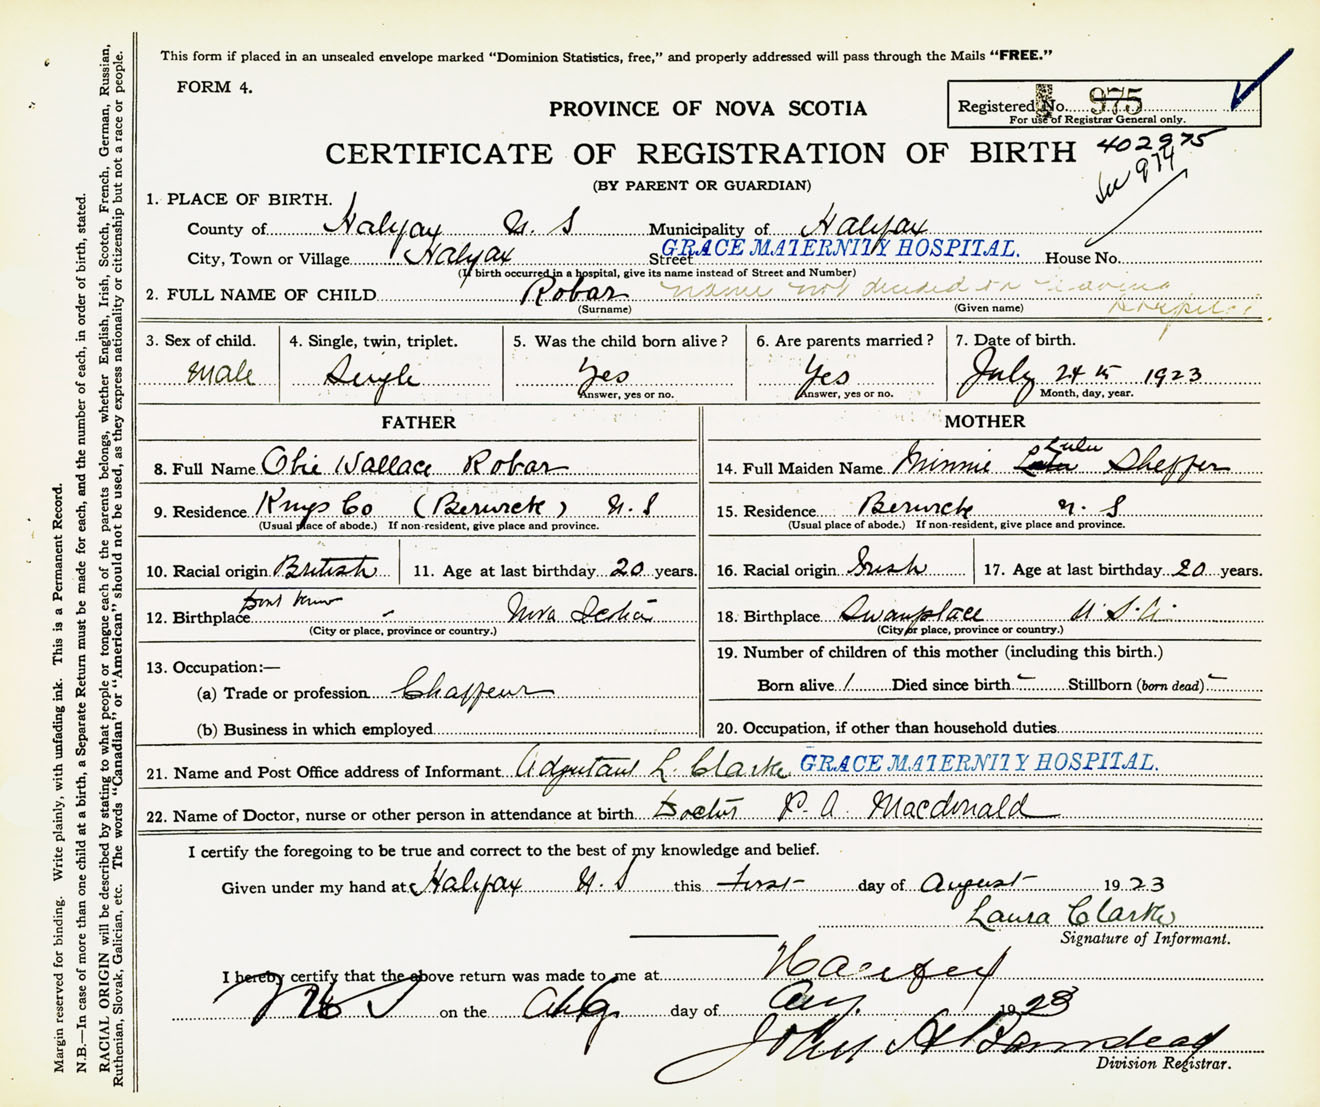 This form if placed in an unsealed envelope marked “Dominion Statistics, free,” and properly addressed will pass through the Mails “FREE.”
FORM 4.
PROVINCE OF NOVA SCOTIA
Registered No. 975
For use of Registrar General only.
CERTIFICATE OF REGISTRATION OF BIRTH
402975
974
(BY PARENT OR GUARDIAN)
1. PLACE OF BIRTH.
County of Halifax N. S Municipality of Halifax
City, Town or Village Halifax Street GRACE MATERNITY HOSPITAL. House No.
(If birth occurred in a hospital, give its name instead of Street and Number)
2. FULL NAME OF CHILD Robar name not decided on leaving Hospital
(Surname) (Given name)
3. Sex of child. 4. Single, twin, triplet. 5. Was the child born alive? 6. Are parents married? 7. Date of birth.
Male Single Yes Yes July 24th 1923
Answer, yes or no. Answer, yes or no. Month, day, year.
FATHER MOTHER
8. Full Name Obie Wallace Robar 14. Full Maiden Name Minnie Lulu Sheffer
9. Residence Kings Co (Berwick) N. S 15. Residence Berwick N. S
(Usual place of abode.) If non-resident, give place and province. (Usual place of abode.) If non-resident, give place and province.
10. Racial origin British 11. Age at last birthday 20 years. 16. Racial origin Irish 17. Age at last birthday 20 years.
12. Birthplace Dont know - Nova Scotia 18. Birthplace Swanplace U. S. A.
(City or place, province or country.) (City or place, province or country.)
13. Occupation:— 19. Number of children of this mother (including this birth.)
(a) Trade or profession Chaffeur Born alive 1 Died since birth - Stillborn (born dead) -
(b) Business in which employed 20. Occupation, if other than household duties
21. Name and Post Office address of Informant Adjutant L. Clarke GRACE MATERNITY HOSPITAL.
22. Name of Doctor, nurse or other person in attendance at birth Doctor P. A. Macdonald
I certify the foregoing to be true and correct to the best of my knowledge and belief.
Given under my hand at Halifax N. S this First day of August 1923
Laura Clarke
Signature of Informant.
I hereby certify that the above return was made to me at Halifax
N S on the day of Aug. 1923
John A Barnstead
Division Registrar.
Margin reserved for binding. Write plainly, with unfading ink. This is a Permanent Record.
N.B.—In case of more than one child at a birth, a Separate Return must be made for each, and the number of each, in order of birth, stated.
RACIAL ORIGIN will be described by stating to what people or tongue each of the parents belongs, whether English, Irish, Scotch, French, German, Russian,
Ruthenian, Slovak, Galician, etc. The words “Canadian” or “American” should not be used, as they express nationality or citizenship but not a race or people.